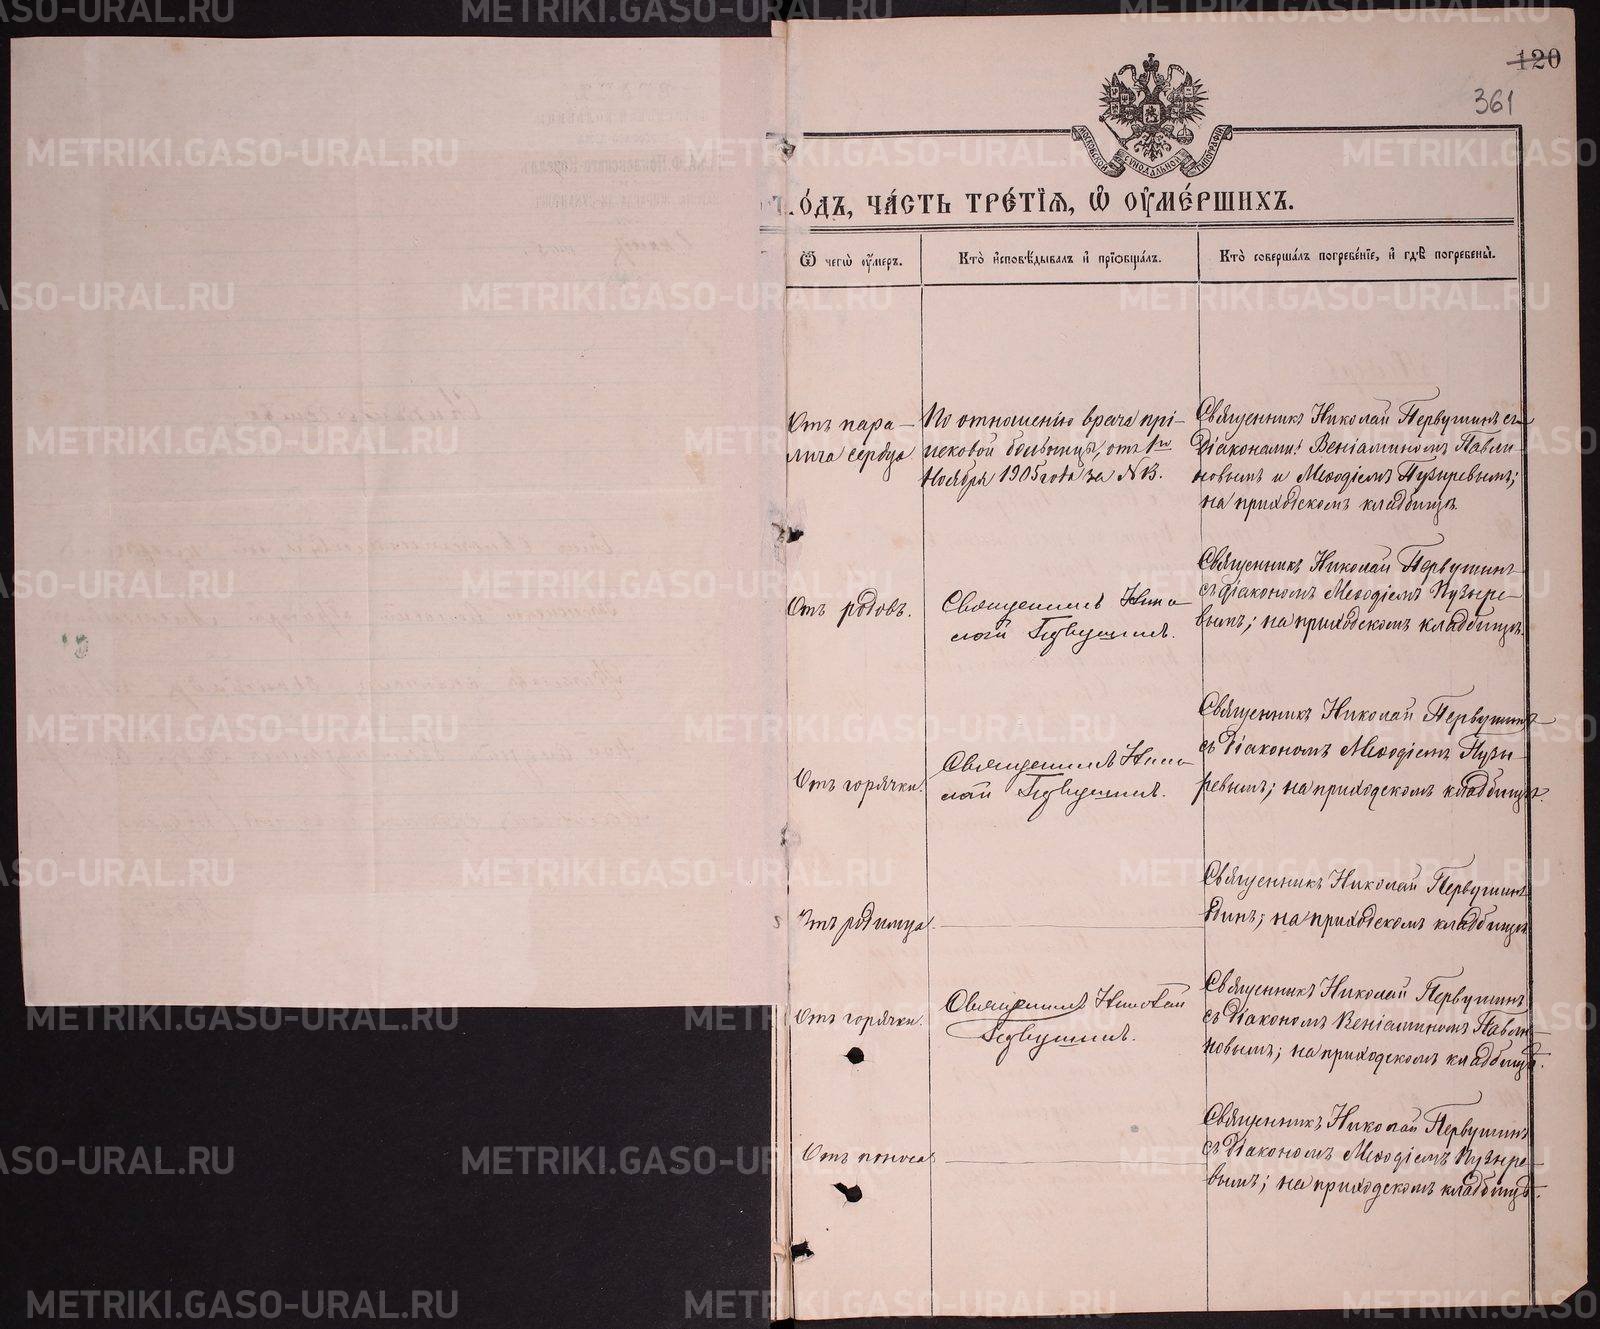 120
361
МОСКОВСКОЙ СѴНОДАЛЬНОЙ ТИПОГРАФІИ
го́дъ, ча́сть тре́тїѧ, ѡ оу҆ме́ршихъ.
Ѿ чегѡ̀ оу҆́меръ.
Кто̀ и҆сповѣ́дывалъ и҆ прїѻбща́лъ.
Кто̀ соверша́лъ погребе́нїе, и҆ гдѣ̀ погребены̀.
Отъ пара-
лича сердца
По отношенію врача прі-
исковой больницы, отъ 1го
Ноября 1905 года за №13.
Священникъ Николай Первушинъ съ
Діаконами: Веніаминомъ Павли-
новымъ и Меѳодіемъ Пузыревымъ;
на приходскомъ кладбищѣ.
Отъ родовъ.
Священникъ Нико-
лай Первушинъ.
Священникъ Николай Первушинъ
съ діакономъ Меѳодіемъ Пузыре-
вымъ; на приходскомъ кладбищѣ.
Отъ горячки.
Священникъ Нико-
лай Первушинъ.
Священникъ Николай Первушинъ
съ Діакономъ Меѳодіемъ Пузы-
ревымъ; на приходскомъ кладбищѣ.
Отъ родимца.
Священникъ Николай Первушинъ
одинъ; на приходскомъ кладбищѣ
Отъ горячки.
Священникъ Николай
Первушинъ.
Священникъ Николай Первушинъ
съ Діакономъ Веніаминомъ Павли-
новымъ; на приходскомъ кладбищѣ.
Отъ поноса
Священникъ Николай Первушинъ
съ Діакономъ Меѳодіемъ Пузыре-
вымъ; на приходскомъ кладбищѣ.
METRIKI.GASO-URAL.RU